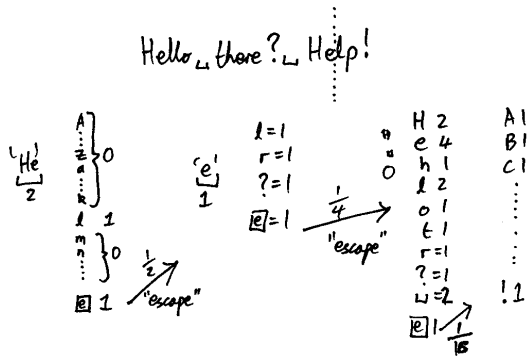 Hello␣there?␣Help!
'He'
2
A
z
a
k
0
l 1
m
n
0
e 1
1/2
"escape"
'e'
1
l=1
r=1
?=1
e=1
1/4
"escape"
0
H 2
e 4
h 1
l 2
o 1
t 1
r=1
?=1
␣=2
e 1
1/16
A 1
B 1
C 1
! 1